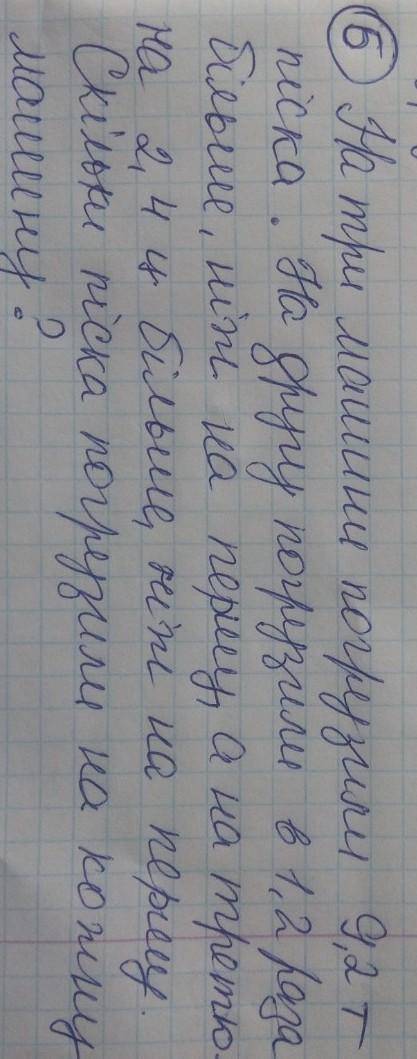 Б На три машини погрузили 9,2 т
піска. На другу погрузили в 1,2 раза
більше, ніж на першу, а на третю
на 2,4 ц більше, ніж на першу.
Скільки піска погрузили на кожну
машину?